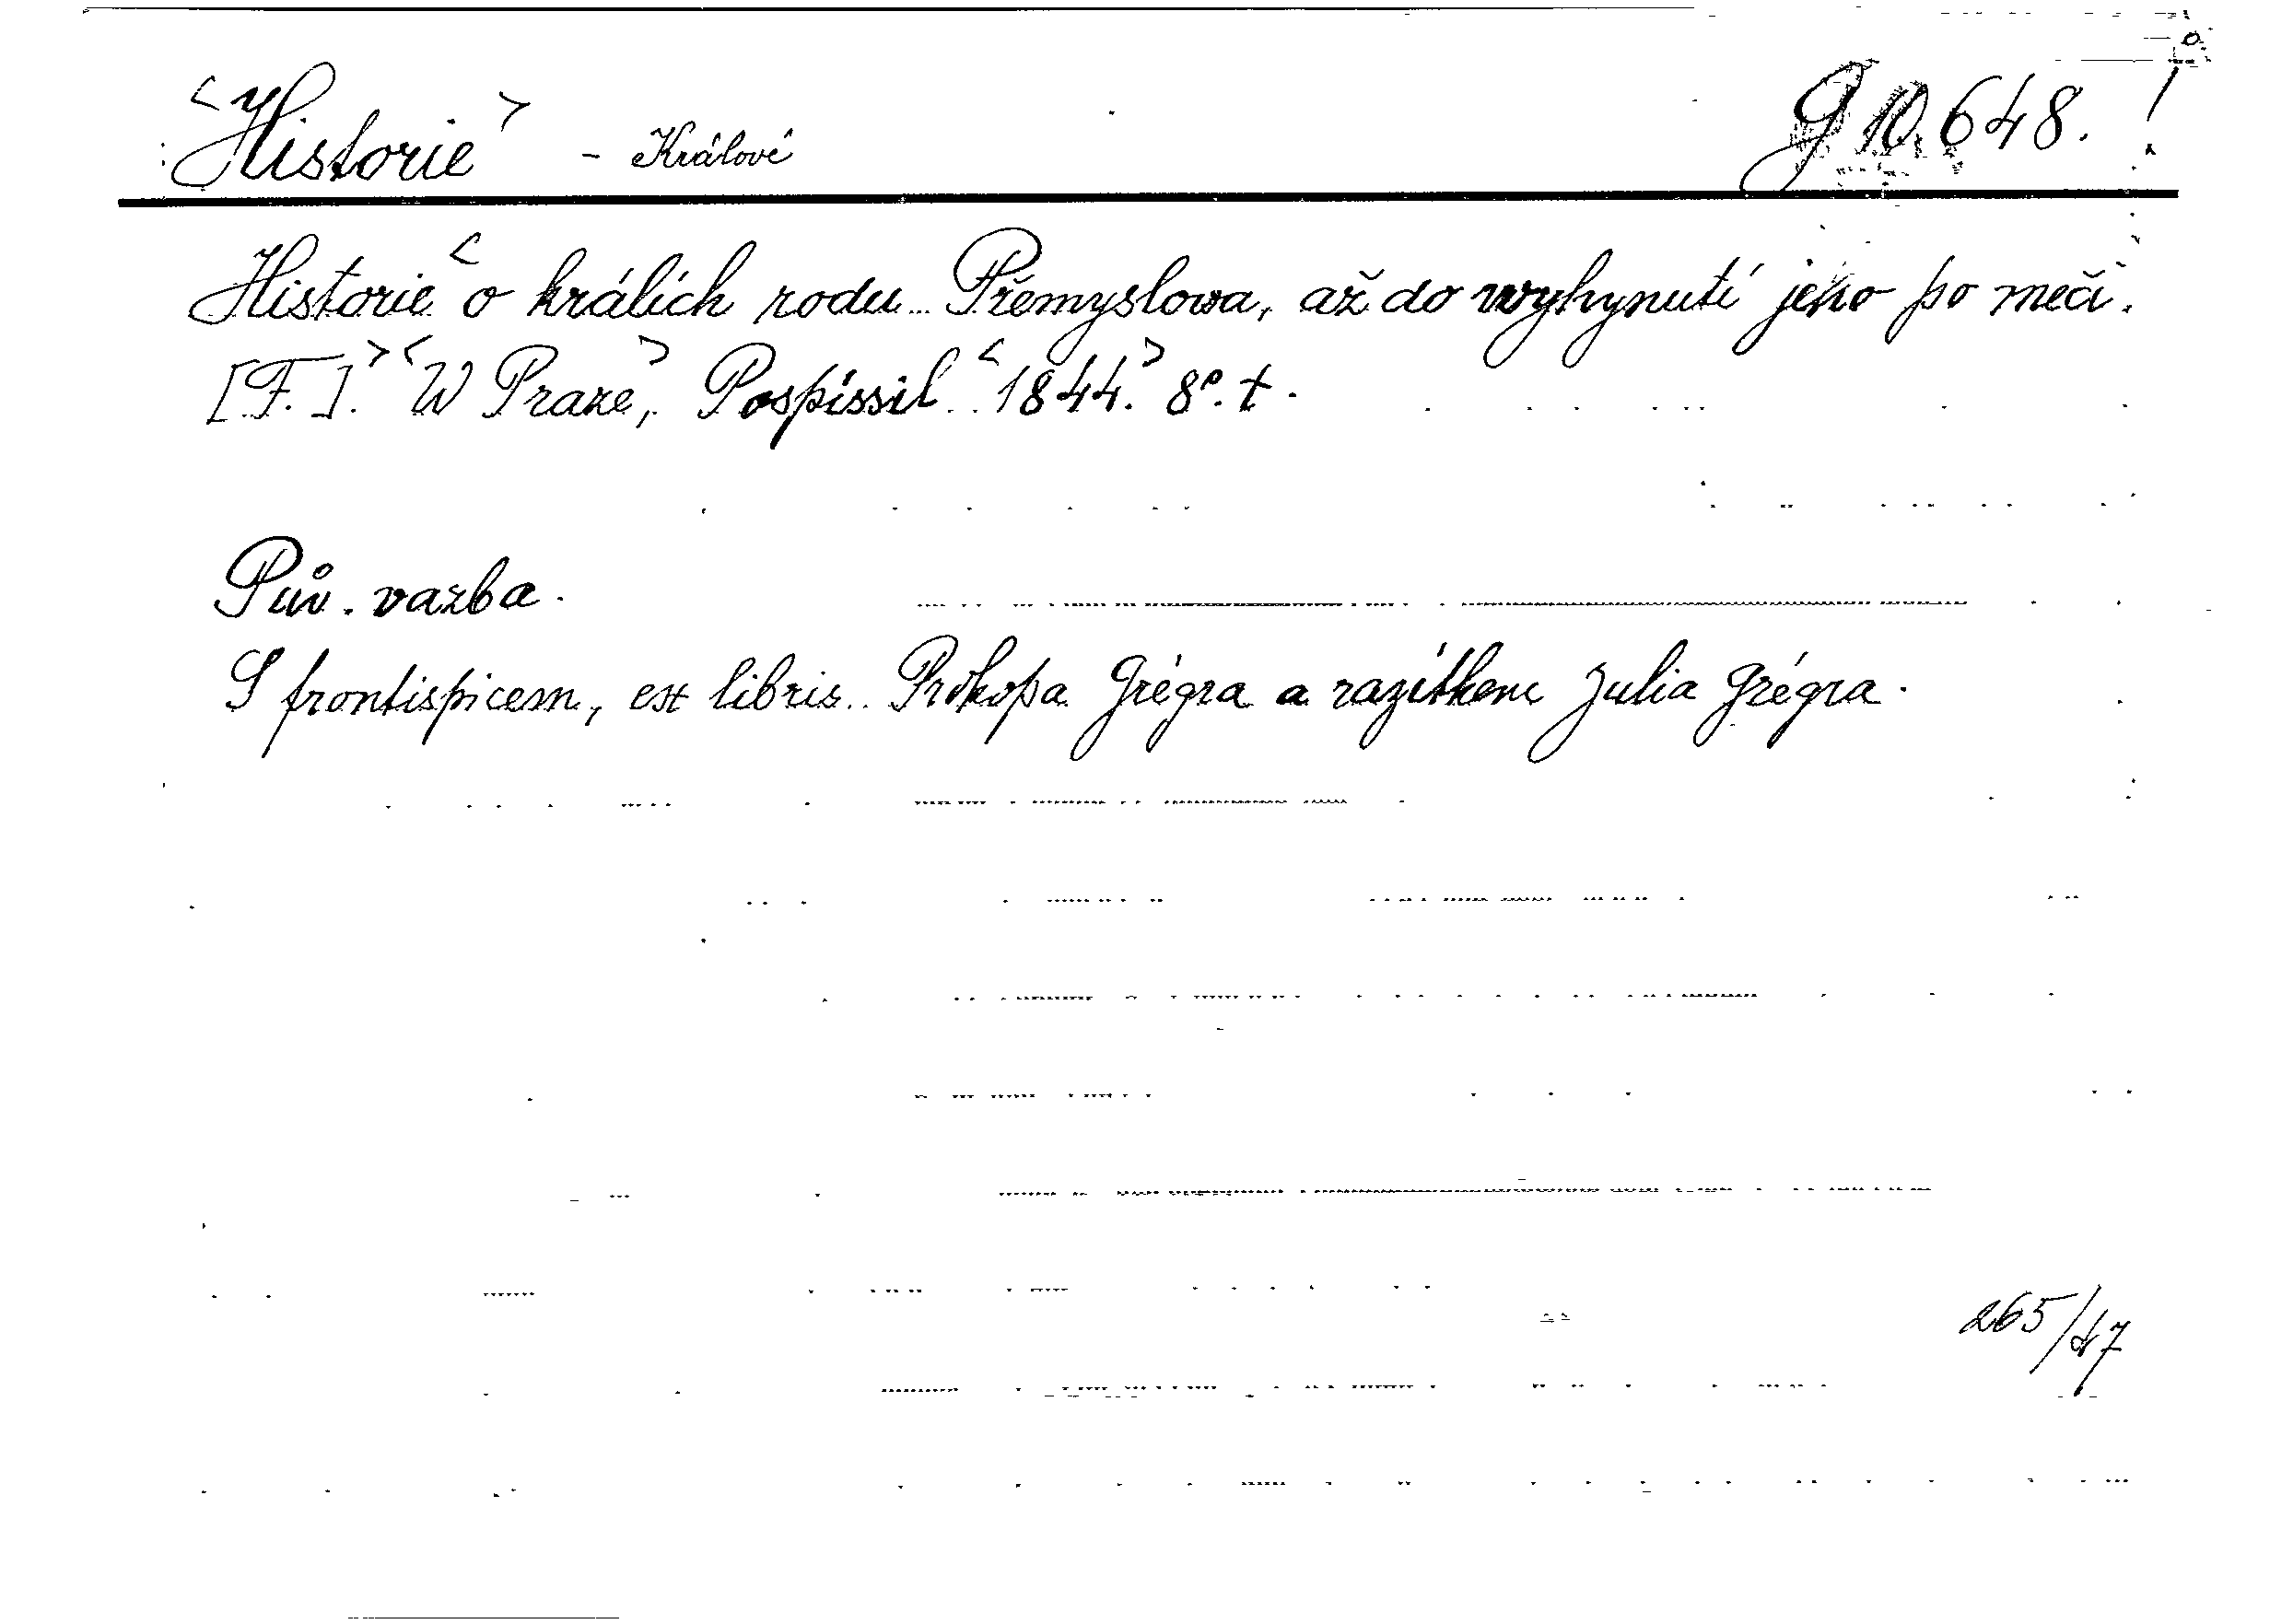 <Historie> - Králové G 10.648.
Historie <o králích rodu Přemyslowa, až do wyhynutí jeho po meči.
[F.].> <W Praze,> Pospíssil <1844.> 8°. t.
Pův. vazba.
S frontispicem, ex libris Prokopa Grégra a razítkem Julia Grégra.
265/47